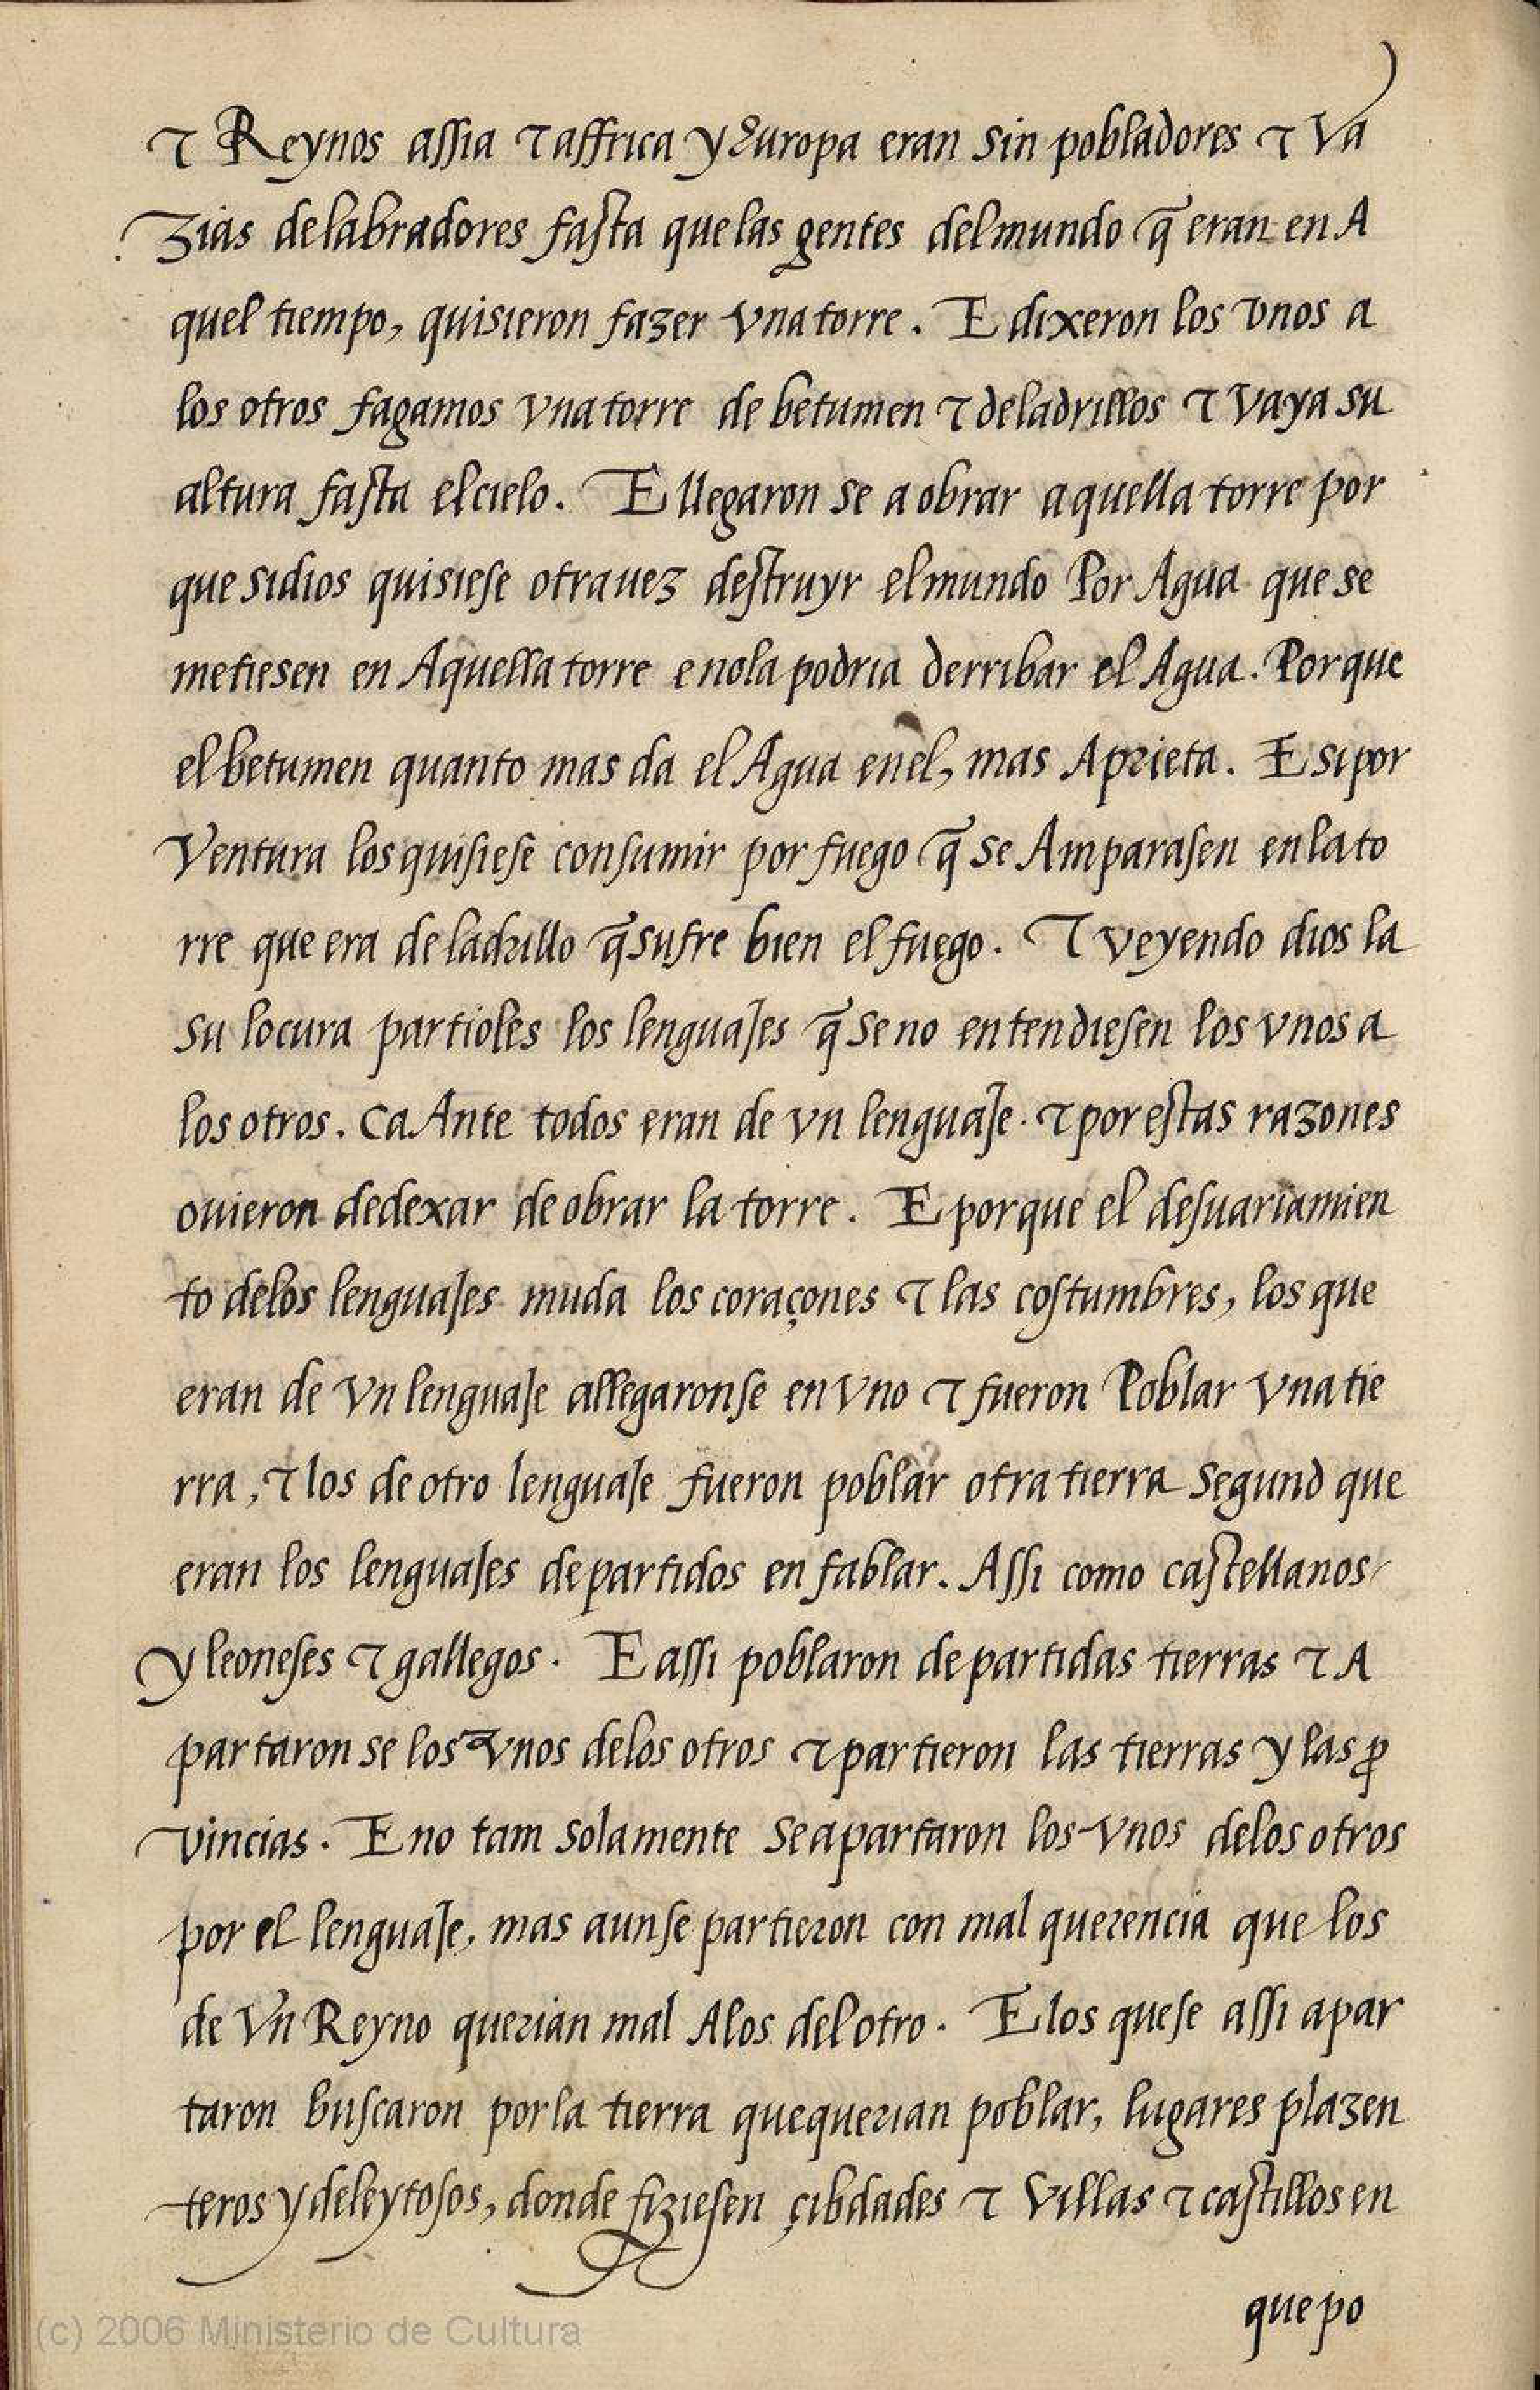 ⁊ Reynos assia ⁊ affrica y Europa eran sin pobladores ⁊ Va
zias delabradores fasta quelas gentes delmundo q̃ eran en A
quel tiempo, quisieron fazer vna torre. E dixeron los vnos a
los otros fagamos vna torre de betumen ⁊ deladrillos ⁊ vaya su
altura fasta elcielo. E llegaron se a obrar aquella torre por
que sidios quisiese otra uez destruyr elmundo Por Agua que se
metiesen en Aquella torre e nola podria derribar el Agua. Porque
elbetumen quanto mas da el Agua enel, mas Aprieta. E sipor
Ventura losquisiese consumir por fuego q̃ se Amparasen enla to
rre que era de ladrillo q̃ sufre bien el fuego. ⁊ veyendo dios la
su locura partioles los lenguajes q̃ se no entendiesen los vnos a
los otros. Ca Ante todos eran de vn lenguaje. ⁊ por estas razones
ouieron dedexar de obrar la torre. E porque el desuariamien
to delos lenguajes muda los coraçones ⁊ las costumbres, los que
eran de vn lenguaje allegaronse en vno ⁊ fueron Poblar vna tie
rra, ⁊ los de otro lenguaje fueron poblar otra tierra segund que
eran los lenguajes departidos en fablar. Assi como castellanos
y leoneses ⁊ gallegos. E assi poblaron departidas tierras ⁊ A
partaron se los vnos delos otros ⁊ partieron las tierras y las ꝓ
vincias. E no tam solamente se apartaron los vnos delos otros
por el lenguaje, mas aunse partieron con mal querencia que los
de Vn Reyno querian mal Alos del otro. E los quese assi apar
taron buscaron por la tierra quequerian poblar, lugares plazen
teros y deleytosos, donde fiziesen çibdades ⁊ villas ⁊ castillos en
que po
(c) 2006 Ministerio de Cultura